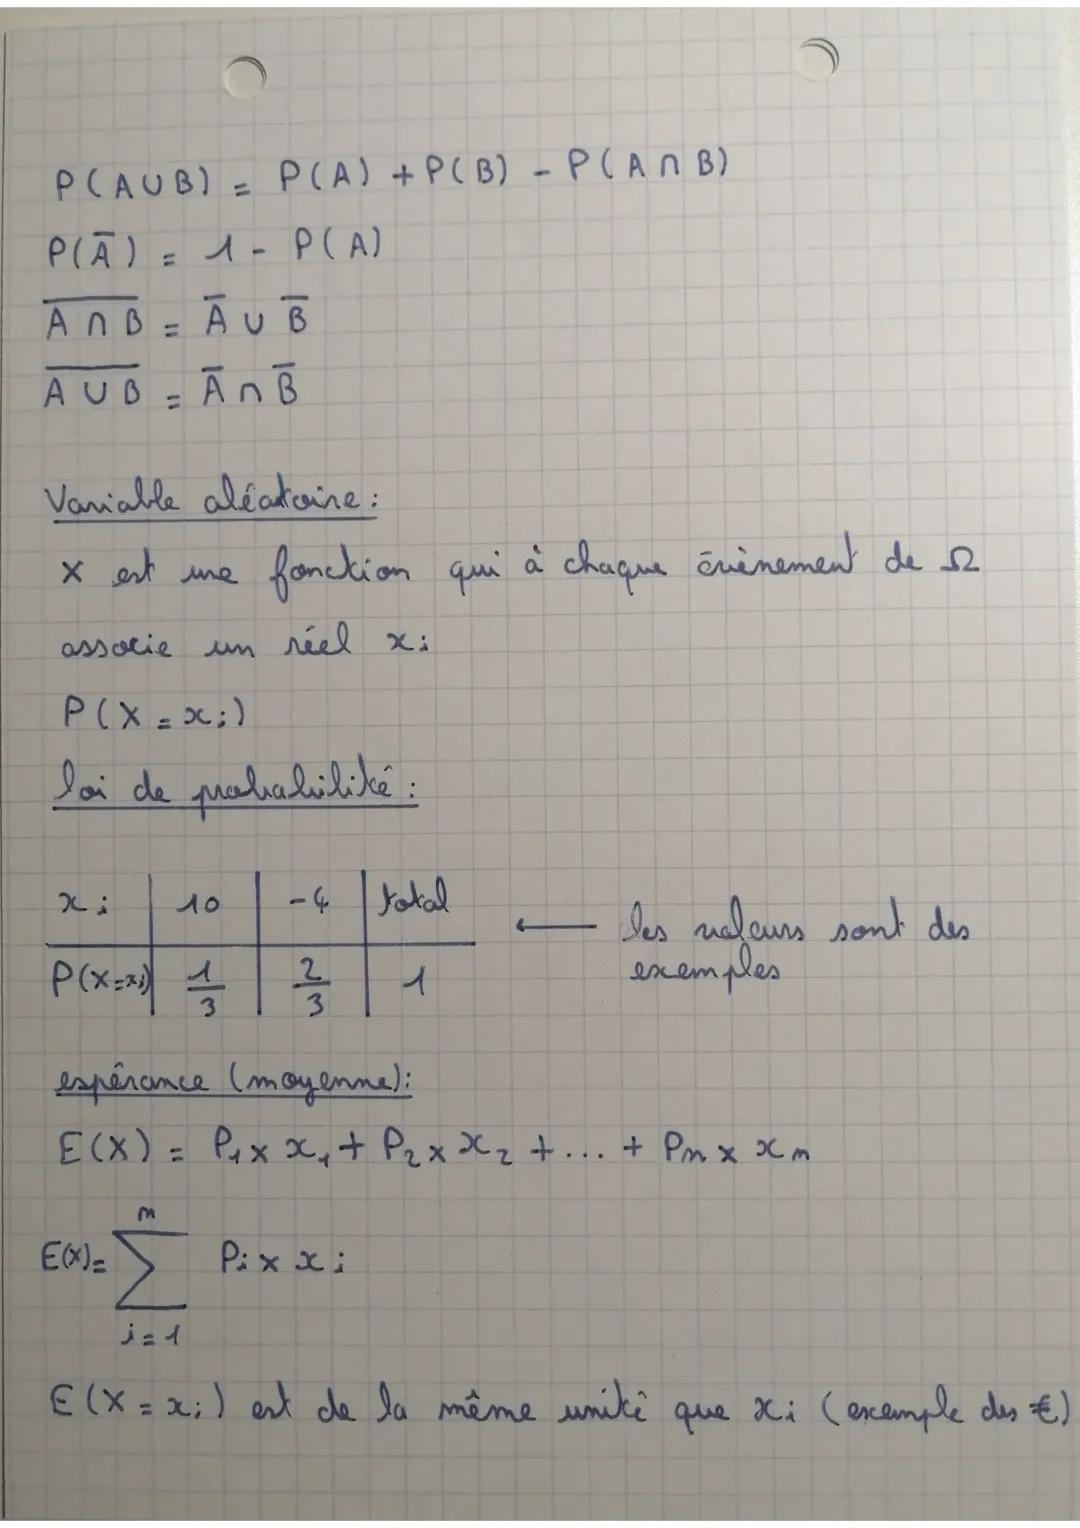 P(A∪B) = P(A) + P(B) - P(A∩B)
P(Ā) = 1 - P(A)
A̅ ̅∩̅ ̅B̅ = Ā ∪ B̅
A̅ ̅∪̅ ̅B̅ = Ā ∩ B̅
Variable aléatoire :
X est une fonction qui à chaque évènement de Ω
associe un réel xi
P(X = xi)
loi de probabilité :
xi | 10 | -4 | total ← les valeurs sont des
exemples
P(X=xi) | 1/3 | 2/3 | 1
espérance (moyenne) :
E(X) = P₁ × x₁ + P₂ × x₂ + ... + Pn × xn
n
E(X) = ∑ Pi × xi
i = 1
E(X = xi) est de la même unité que xi (exemple des €)